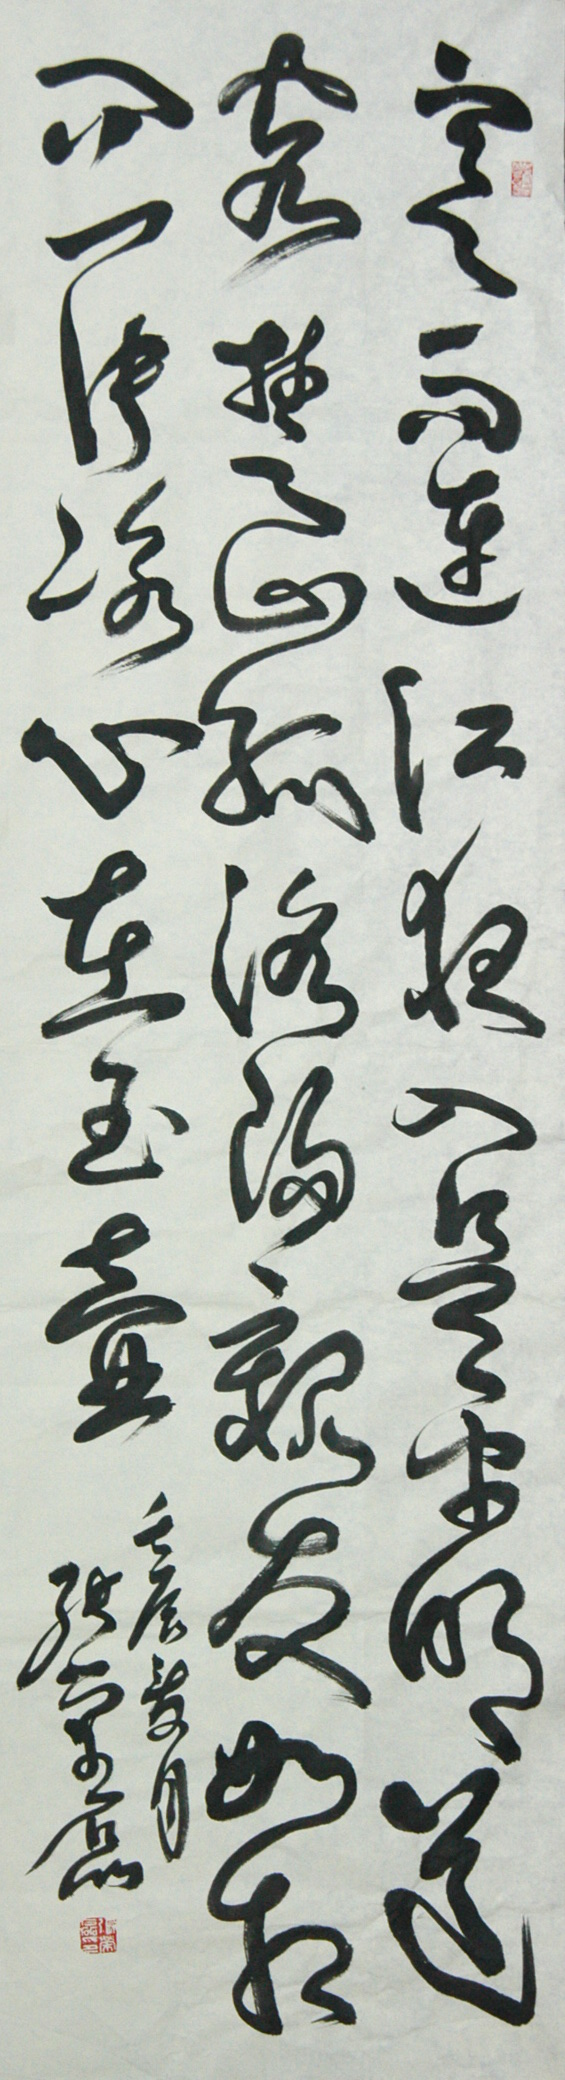 寒雨連江夜入吳平明送
客楚山孤洛陽親友如相
問一片冰心在玉壺
壬辰月
張